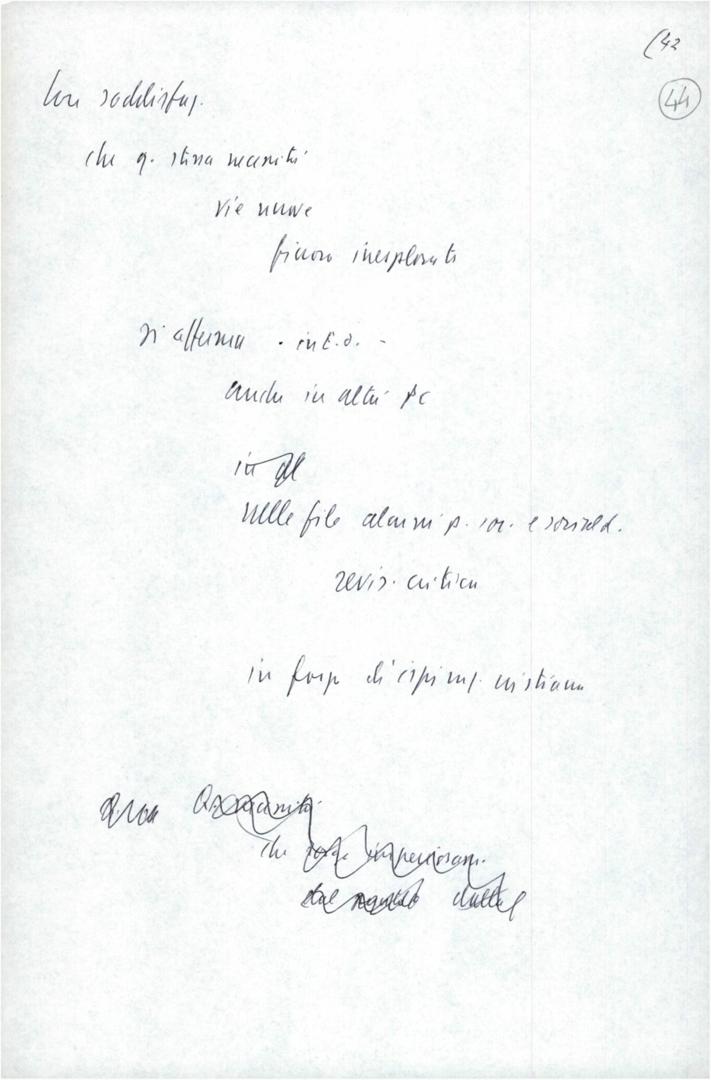 (42
44
Con soddisfaz.
che q. stessa necessità
vie nuove
finora inesplorate
si afferma - in E.O. -
anche in altri pc
in
nelle file alcuni p. soc. e socialdd.
revis. critica
in forze di ispiraz. cristiana
che imperiosam.